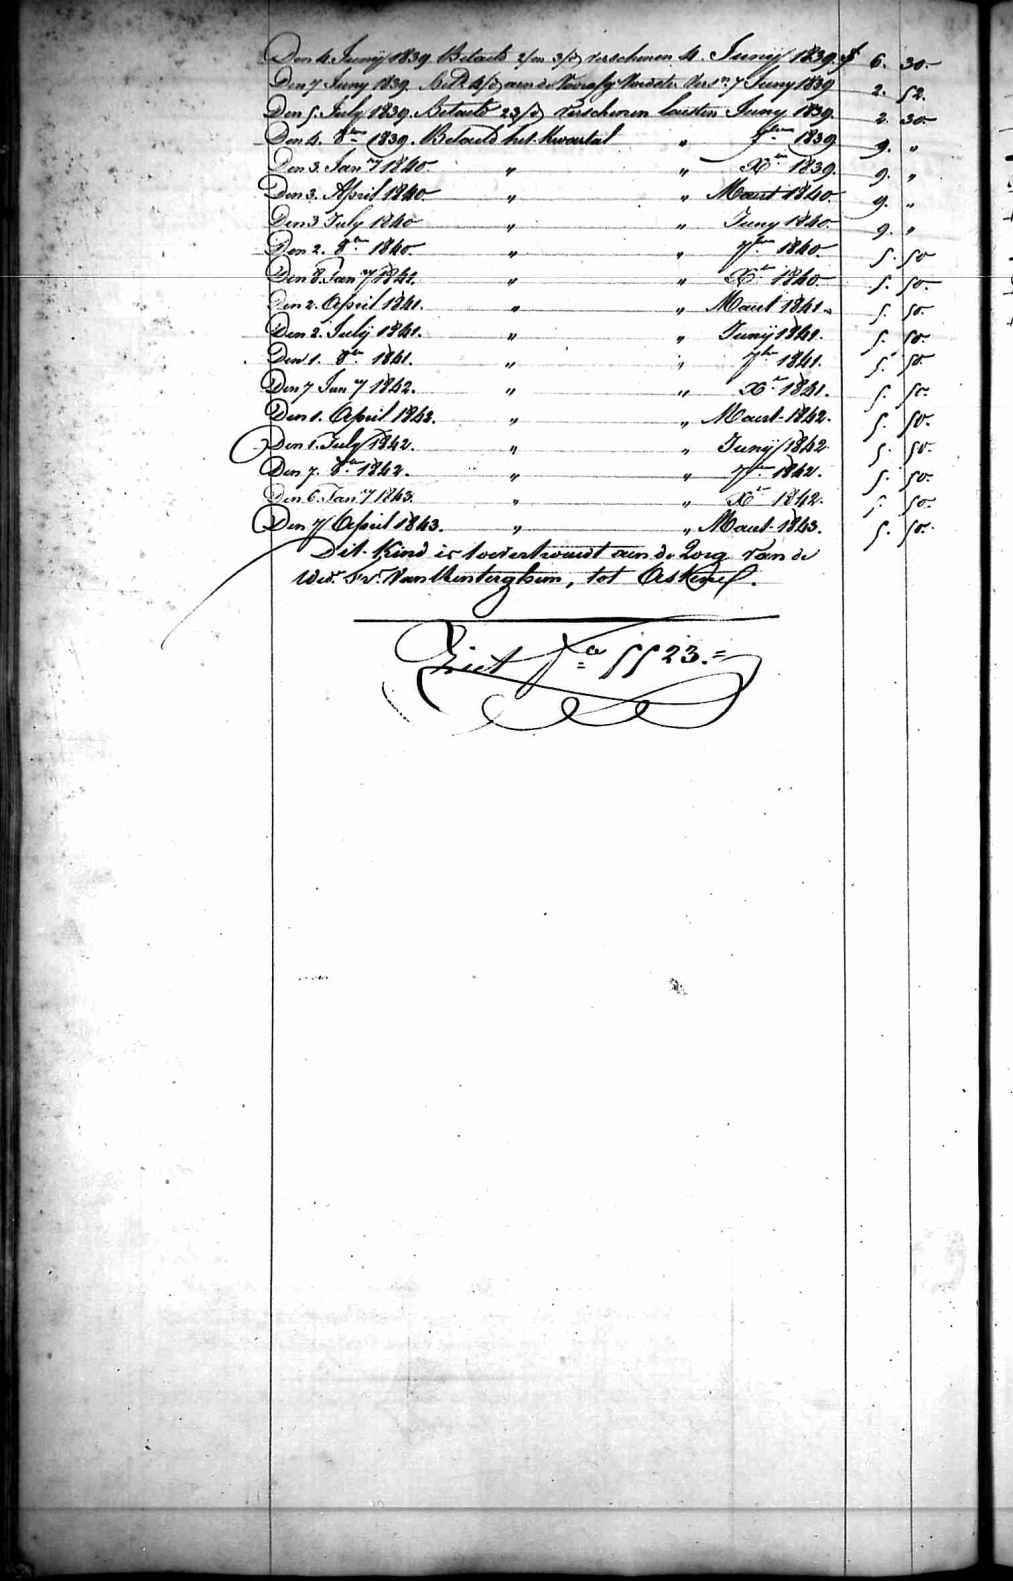 Den 4. Junij 1839. Betaeld 2/m 3/d verschenen 4. Junij 1839. f 6. 30.
Den 7 Juny 1839. Bet. 4/d aen de Voorafg. Voedster Vers.n 7 Juny 1839 2. 52.
Den 5. July 1839. Betaeld 23/d verschenen laesten Juny 1839. 2. 30.
Den 4. 8ber 1839. Betaeld het Kwartal " 7ber 1839 9. "
Den 3. Jan.y 1840. " " Xber 1839. 9. "
Den 3. April 1840. " " Maert 1840. 9. "
Den 3 July 1840 " " Juny 1840. 9. "
Den 2. 8ber 1840. " " 7ber 1840. 5. 50
Den 8. Jan.y 1841. " " Xber 1840. 5. 50.
Den 2. April 1841. " " Maert 1841. 5. 50.
Den 2. Julij 1841. " " Junij 1841. 5. 50.
Den 1. 8ber 1841. " " 7ber 1841. 5. 50.
Den 7 Jan.y 1842. " " Xber 1841. 5. 50.
Den 1. April 1842. " " Maert 1842. 5. 50.
Den 1. July 1842. " " Junij 1842 5. 50.
Den 7. 8ber 1842. " " 7ber 1842. 5. 50.
Den 6. Jan.y 1843. " " Xber 1842. 5. 50.
Den 7 April 1843. " " Maert 1843. 5. 50.
Dit Kind is toevertrouwd aen de Zorg van de
Wed.e Fr. Van Winterghem, tot
Ziet F.o 5523.=